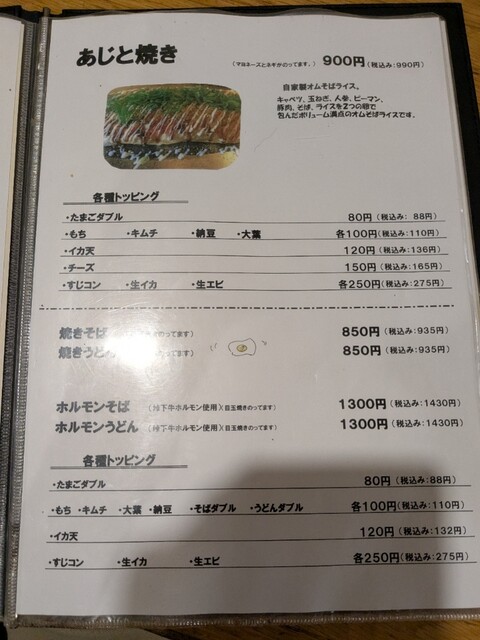 あじと焼き (マヨネーズとネギがのってます。) 900円(税込み:990円)
自家製オムそばライス。
キャベツ、玉ねぎ、人参、ピーマン、
豚肉、そば、ライスを2つの卵で
包んだボリューム満点のオムそばライスです。
各種トッピング
・たまごダブル 80円(税込み: 88円)
・もち ・キムチ ・納豆 ・大葉 各100円(税込み:110円)
・イカ天 120円(税込み:136円)
・チーズ 150円(税込み:165円)
・すじコン ・生イカ ・生エビ 各250円(税込み:275円)
焼きそば のってます) 850円(税込み:935円)
焼きうどん のってます) 850円(税込み:935円)
ホルモンそば 下牛ホルモン使用)(目玉焼きのってます) 1300円(税込み:1430円)
ホルモンうどん 下牛ホルモン使用)(目玉焼きのってます) 1300円(税込み:1430円)
各種トッピング
・たまごダブル 80円(税込み:88円)
・もち ・キムチ ・大葉 ・納豆 ・そばダブル ・うどんダブル 各100円(税込み:110円)
・イカ天 120円(税込み:132円)
・すじコン ・生イカ ・生エビ 各250円(税込み:275円)